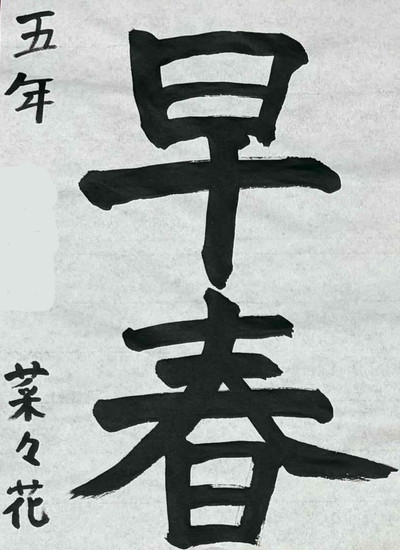 早春
五年
菜々花